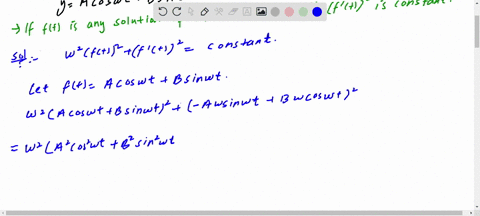 y = A cos ωt + B
→ If f(t) is any solution (f'(t))² is constant.
Sol:- ω²(f(t))² + (f'(t))² = constant.
Let f(t) = A cos ωt + B sin ωt.
ω²(A cos ωt + B sin ωt)² + (-Aω sin ωt + Bω cos ωt)²
= ω²(A² cos² ωt + B² sin² ωt